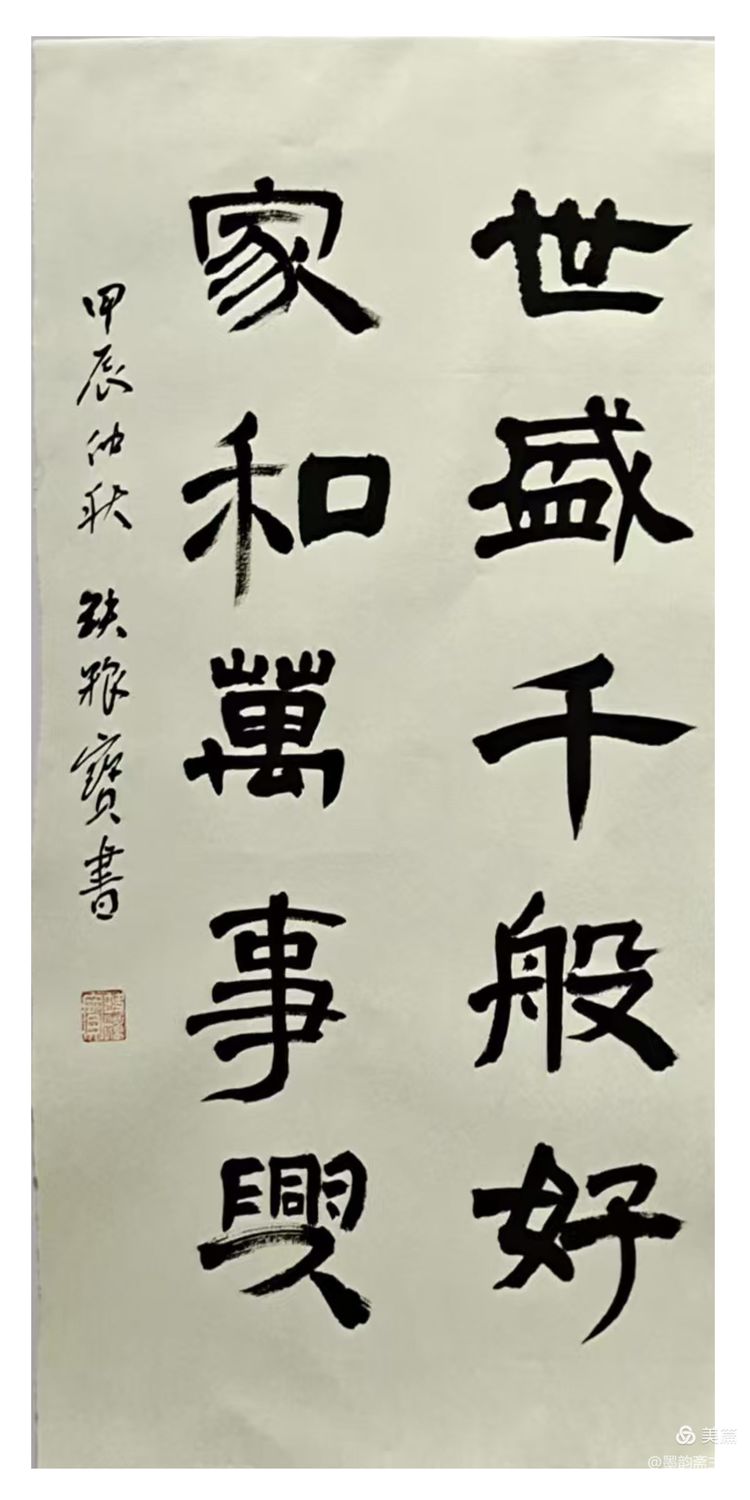 世盛千般好
家和萬事興
甲辰仲秋 鉄粮寶書
美篇
@墨韵斋主